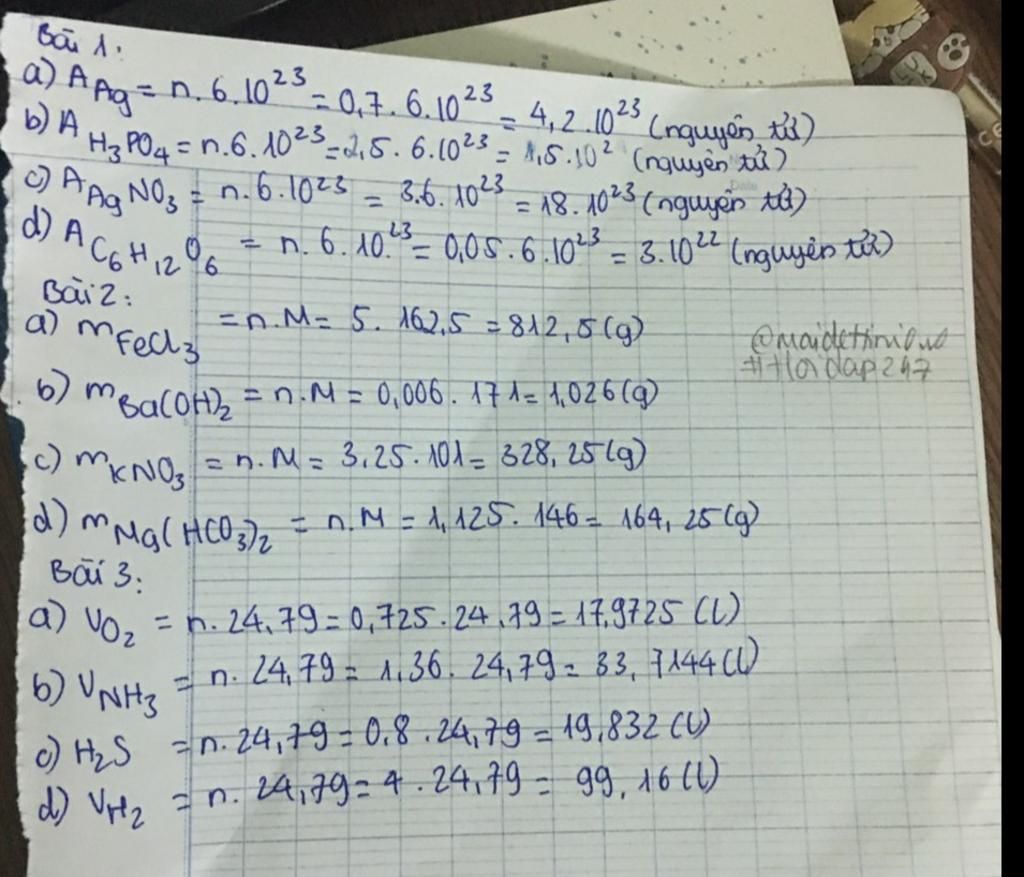 Bài 1:
a) A Ag = n. 6.10²³ = 0,7. 6.10²³ = 4,2.10²³ (nguyên tử)
b) A H₃PO₄ = n.6.10²³ = 2,5. 6.10²³ = 1,5.10² (nguyên tử)
c) A AgNO₃ = n. 6.10²³ = 3.6.10²³ = 18.10²³ (nguyên tử)
d) A C₆H₁₂O₆ = n. 6.10.²³ = 0,05.6.10²³ = 3.10²² (nguyên tử)
Bài 2:
a) m FeCl₃ = n.M = 5. 162,5 = 812,5 (g)
b) m Ba(OH)₂ = n.M = 0,006. 171 = 1,026 (g)
c) m KNO₃ = n.M = 3,25.101 = 328,25 (g)
d) m Mg(HCO₃)₂ = n.M = 1,125. 146 = 164,25 (g)
Bài 3:
a) V O₂ = n. 24,79 = 0,725. 24,79 = 17,9725 (l)
b) V NH₃ = n. 24,79 = 1,36. 24,79 = 33,7144 (l)
c) H₂S = n. 24,79 = 0,8. 24,79 = 19,832 (l)
d) V H₂ = n. 24,79 = 4. 24,79 = 99,16 (l)
#Hoidap247